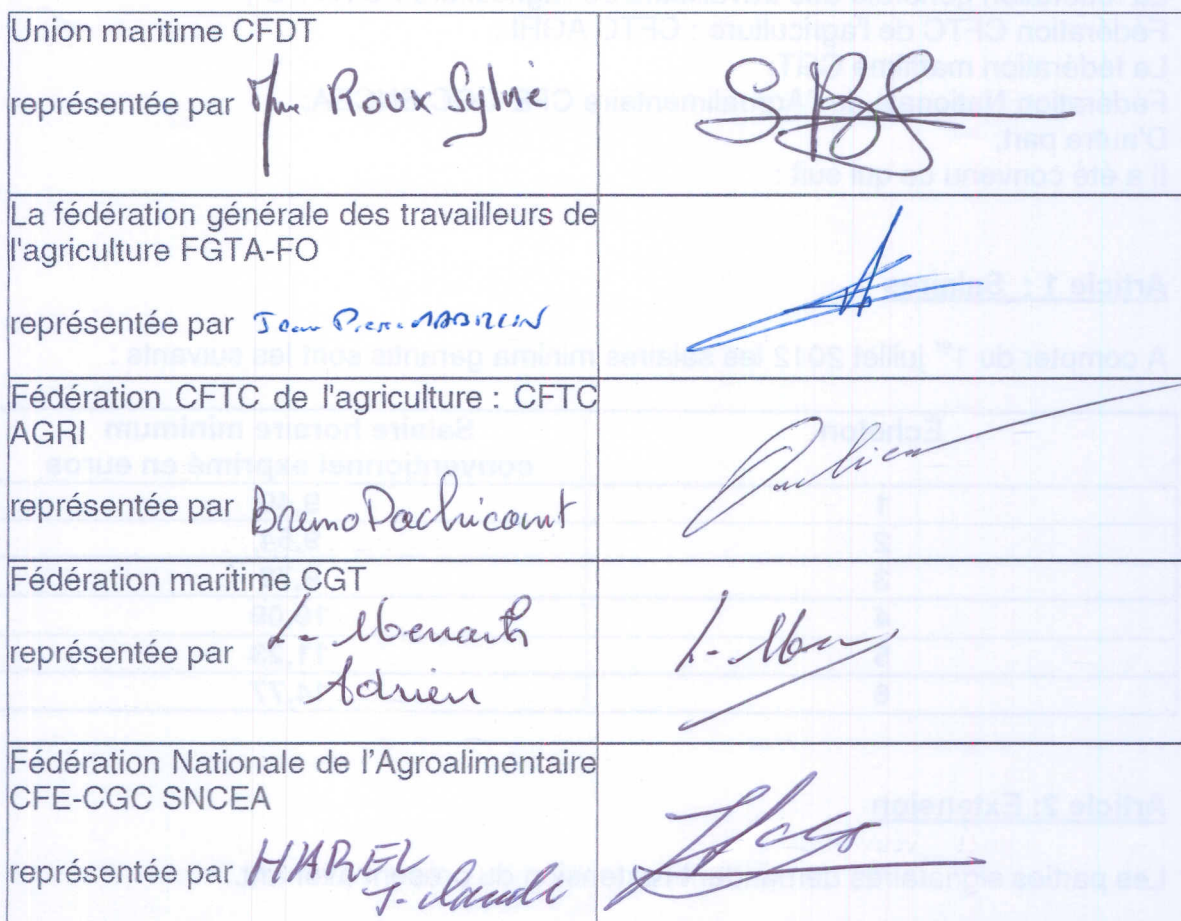 Union maritime CFDT
représentée par Mme Roux Sylvie
La fédération générale des travailleurs de
l'agriculture FGTA-FO
représentée par Jean Pierre
Fédération CFTC de l'agriculture : CFTC
AGRI
représentée par Bruno Pachicourt
Fédération maritime CGT
représentée par
Adrien
Fédération Nationale de l'Agroalimentaire
CFE-CGC SNCEA
représentée par HAREL
J. Claude